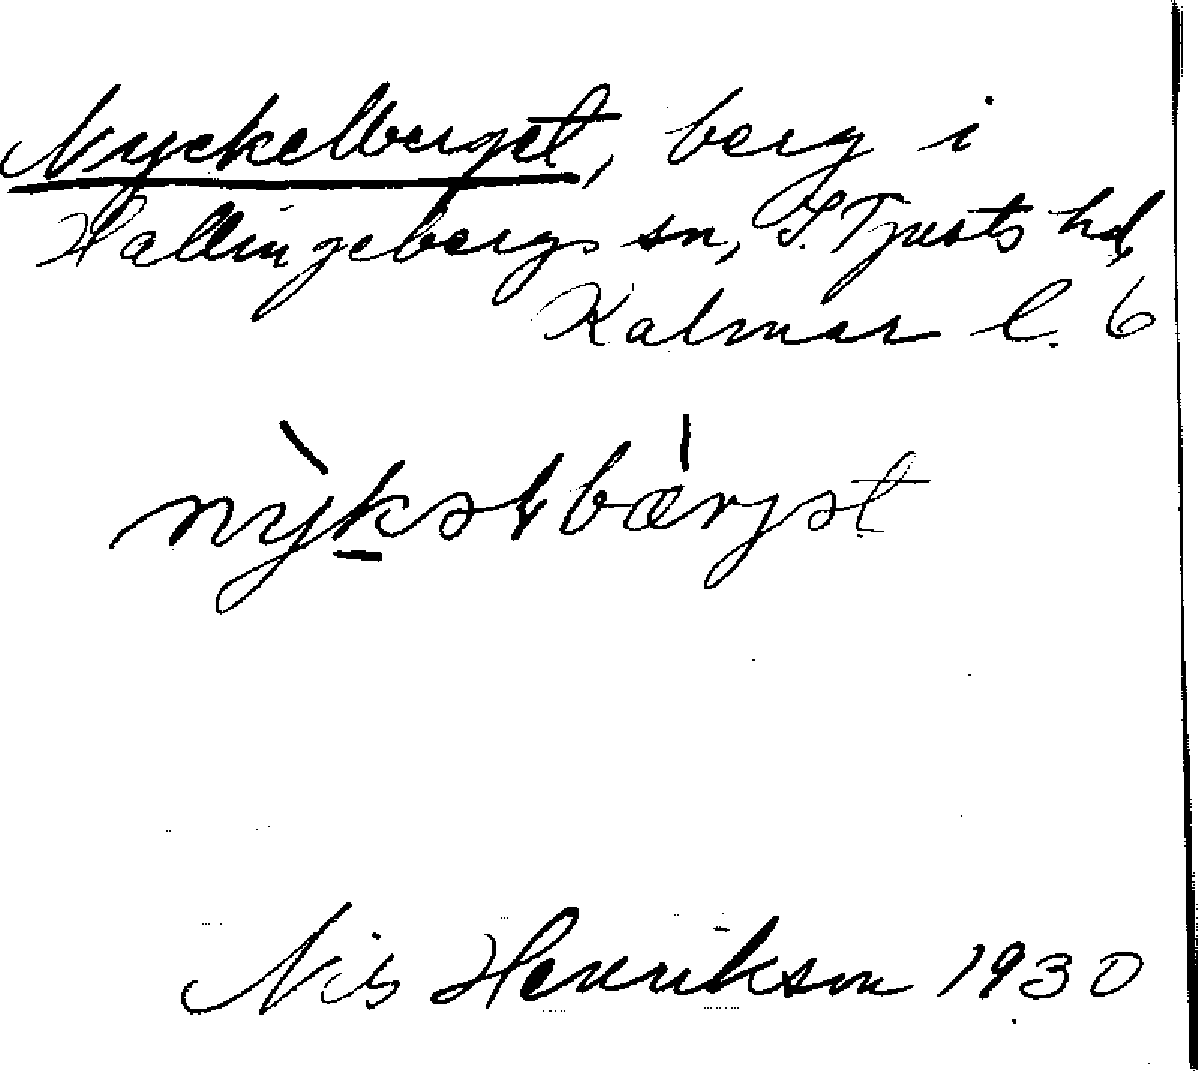 Nyckelberget, berg i
Hallingebergs sn, S. Tjusts hd,
Kalmar l. 6
nỳkəlbæ̀rjət
Nils Henrikson 1930